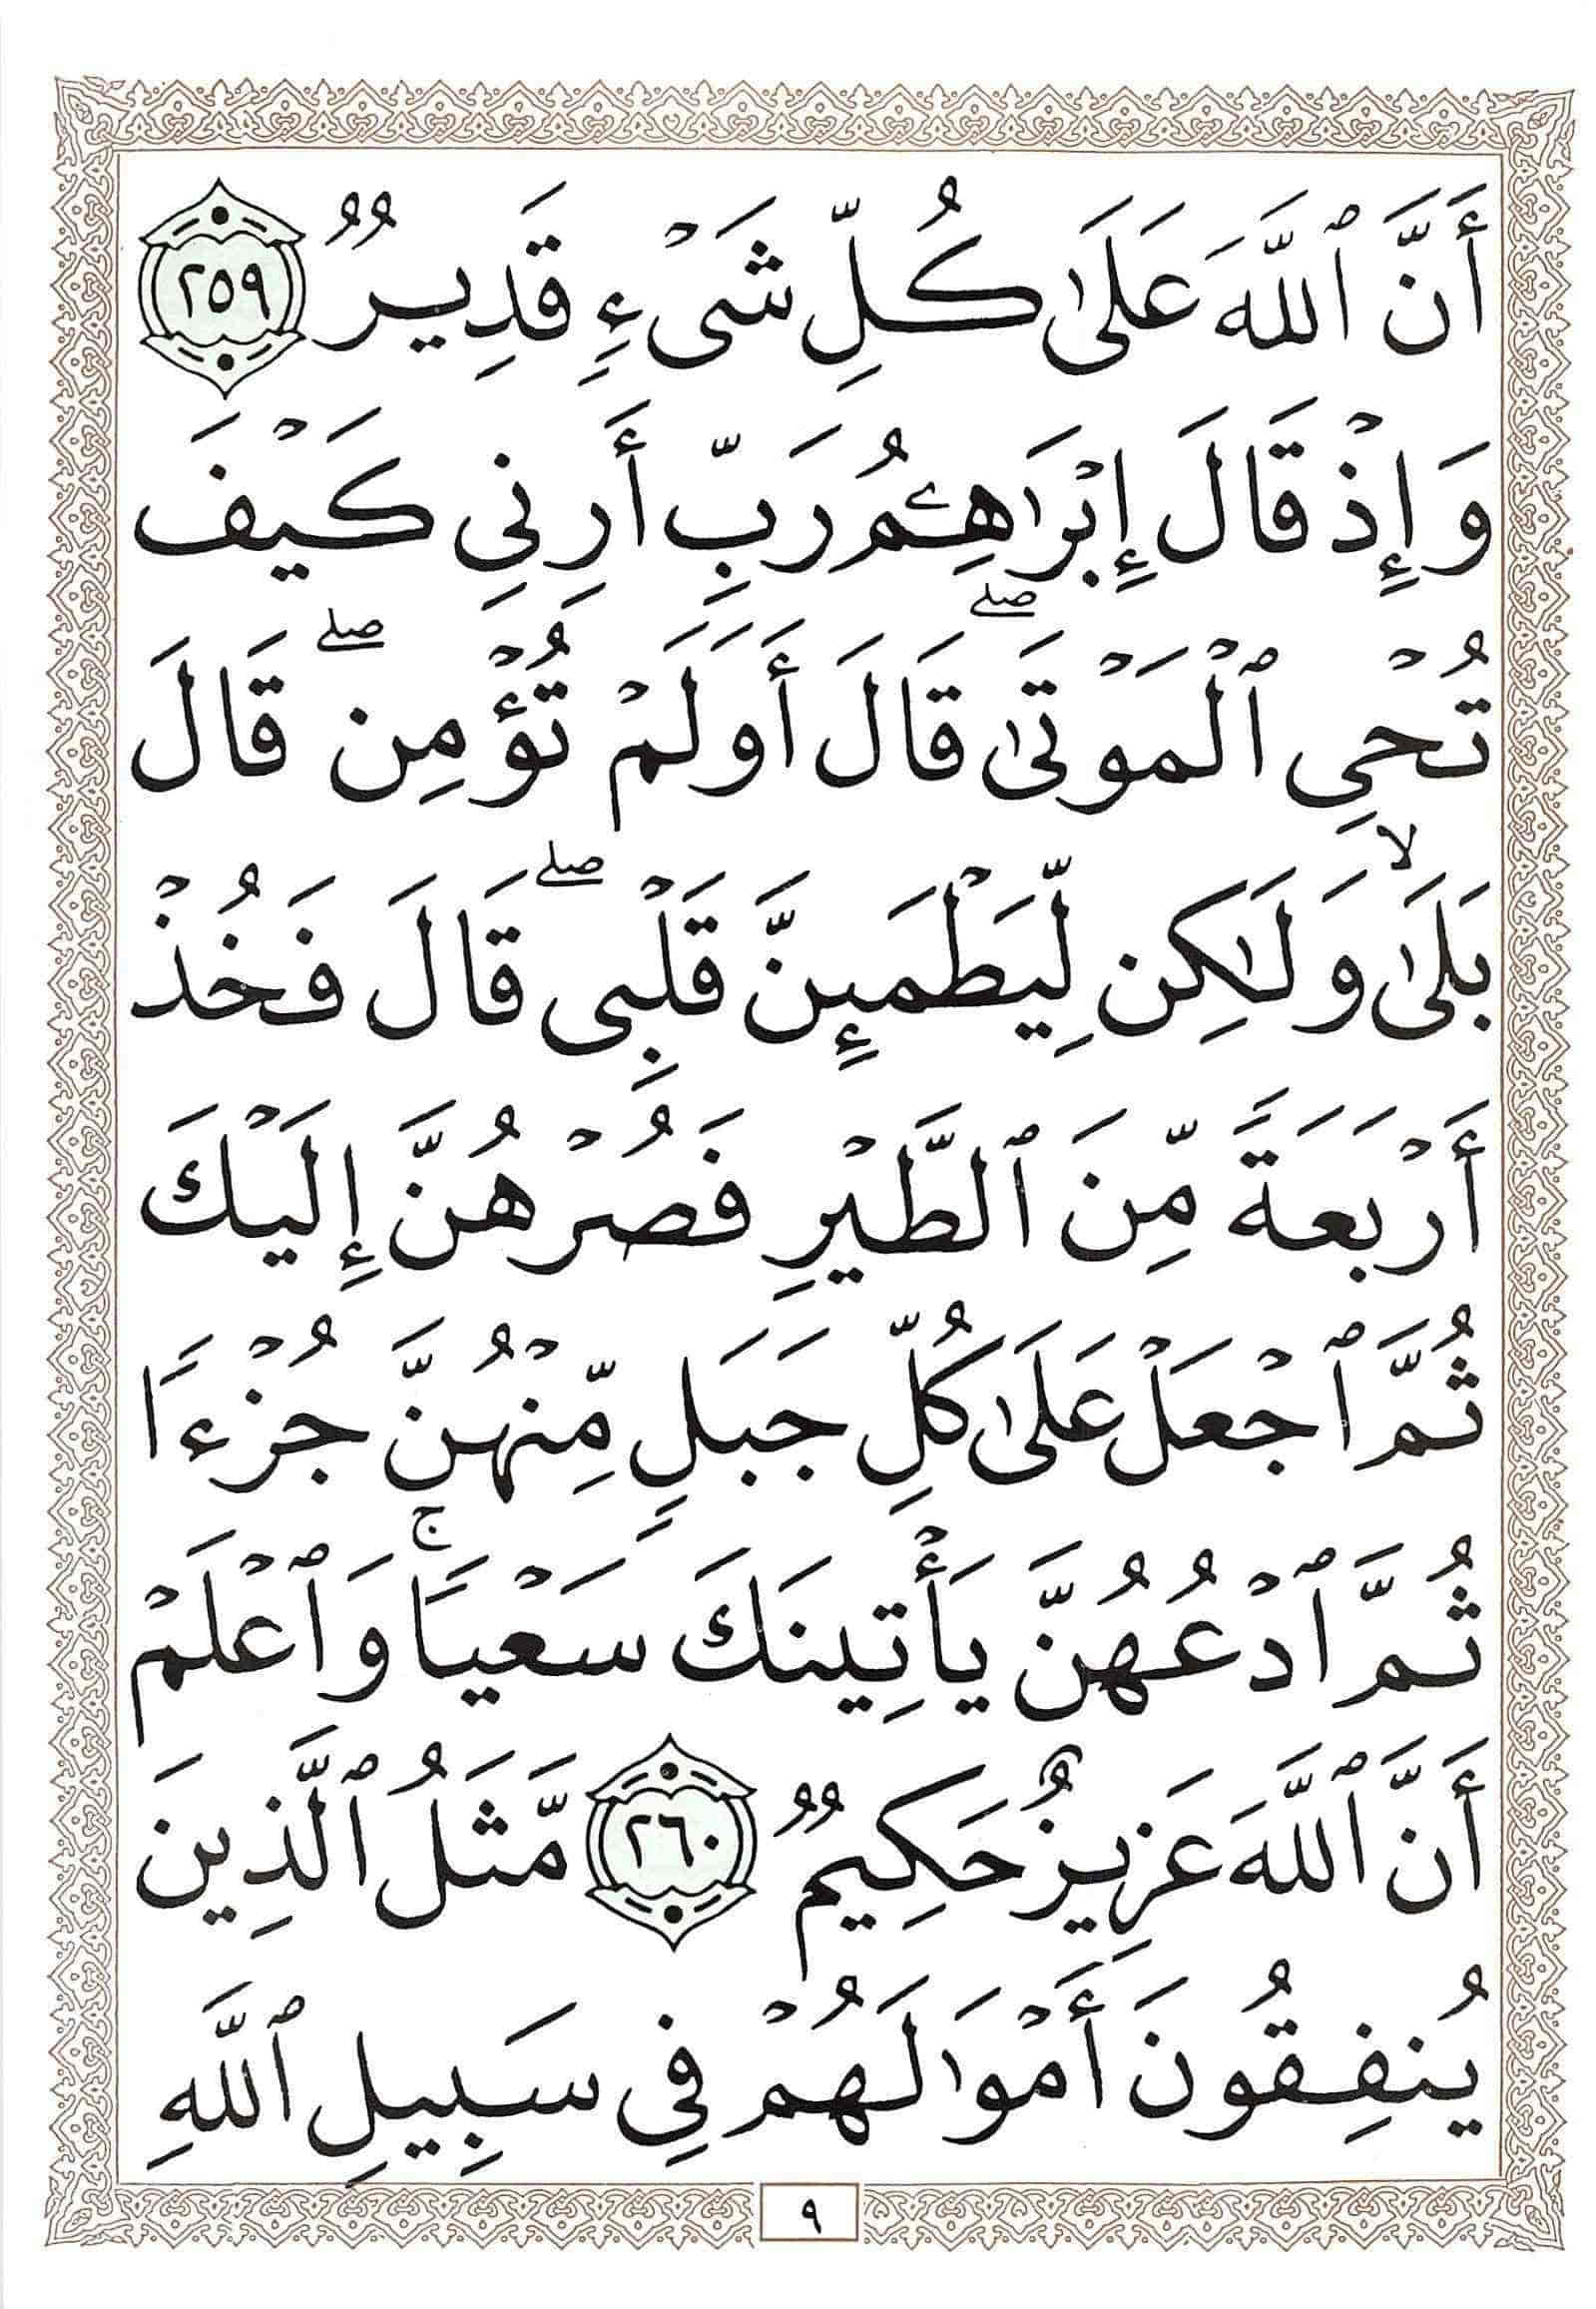 أَنَّ ٱللَّهَ عَلَىٰ كُلِّ شَىْءٍ قَدِيرٌ ٢٥٩
وَإِذْ قَالَ إِبْرَٰهِـۧمُ رَبِّ أَرِنِى كَيْفَ
تُحْىِ ٱلْمَوْتَىٰ ۖ قَالَ أَوَلَمْ تُؤْمِن ۖ قَالَ
بَلَىٰ ۙ وَلَٰكِن لِّيَطْمَئِنَّ قَلْبِى ۖ قَالَ فَخُذْ
أَرْبَعَةً مِّنَ ٱلطَّيْرِ فَصُرْهُنَّ إِلَيْكَ
ثُمَّ ٱجْعَلْ عَلَىٰ كُلِّ جَبَلٍ مِّنْهُنَّ جُزْءًا
ثُمَّ ٱدْعُهُنَّ يَأْتِينَكَ سَعْيًا ۚ وَٱعْلَمْ
أَنَّ ٱللَّهَ عَزِيزٌ حَكِيمٌ ٢٦٠ مَّثَلُ ٱلَّذِينَ
يُنفِقُونَ أَمْوَٰلَهُمْ فِى سَبِيلِ ٱللَّهِ
٩